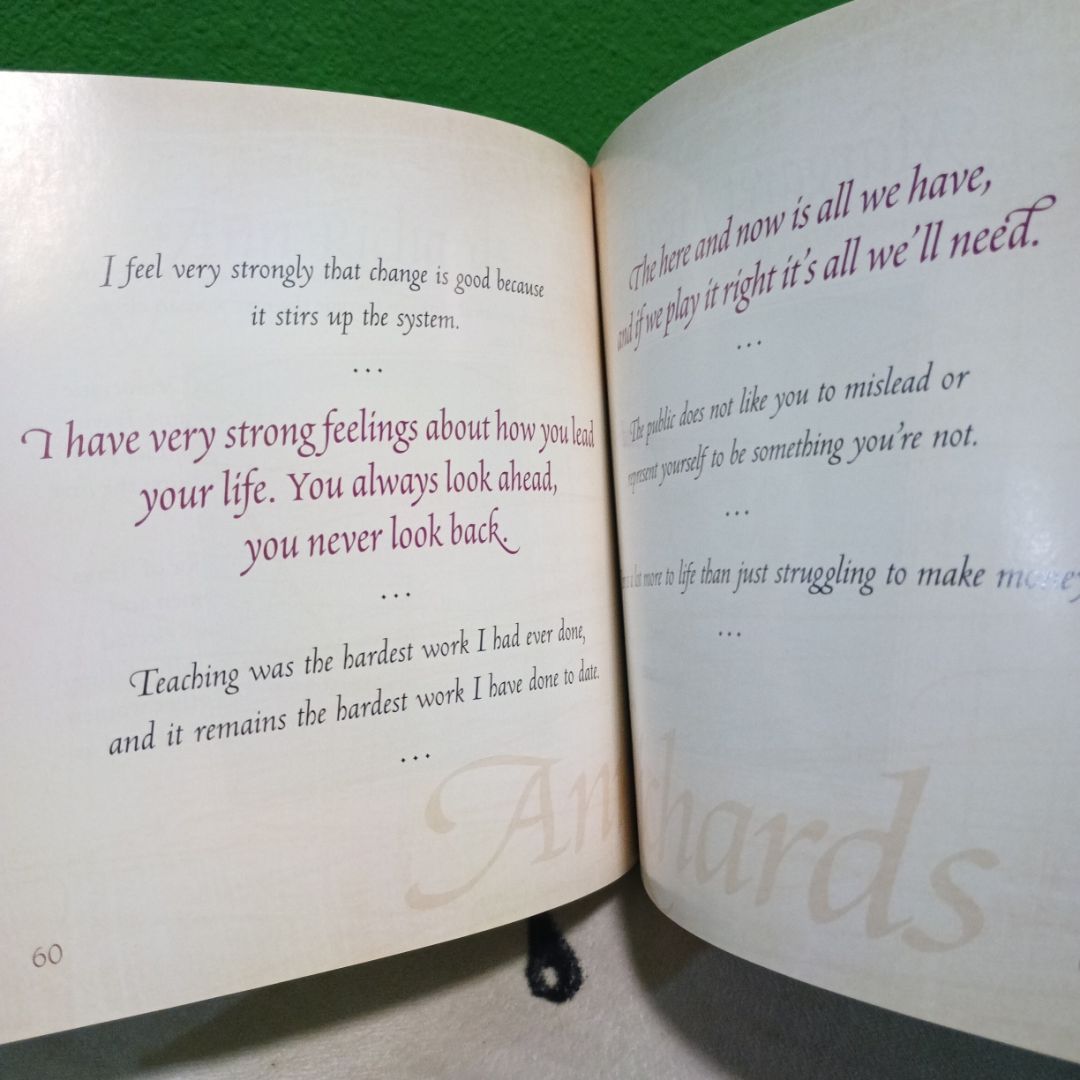 I feel very strongly that change is good because
it stirs up the system.
...
I have very strong feelings about how you lead
your life. You always look ahead,
you never look back.
...
Teaching was the hardest work I had ever done,
and it remains the hardest work I have done to date.
...
60
The here and now is all we have,
and if we play it right it's all we'll need.
...
The public does not like you to mislead or
represent yourself to be something you're not.
...
a lot more to life than just struggling to make money
...
Ann
hards